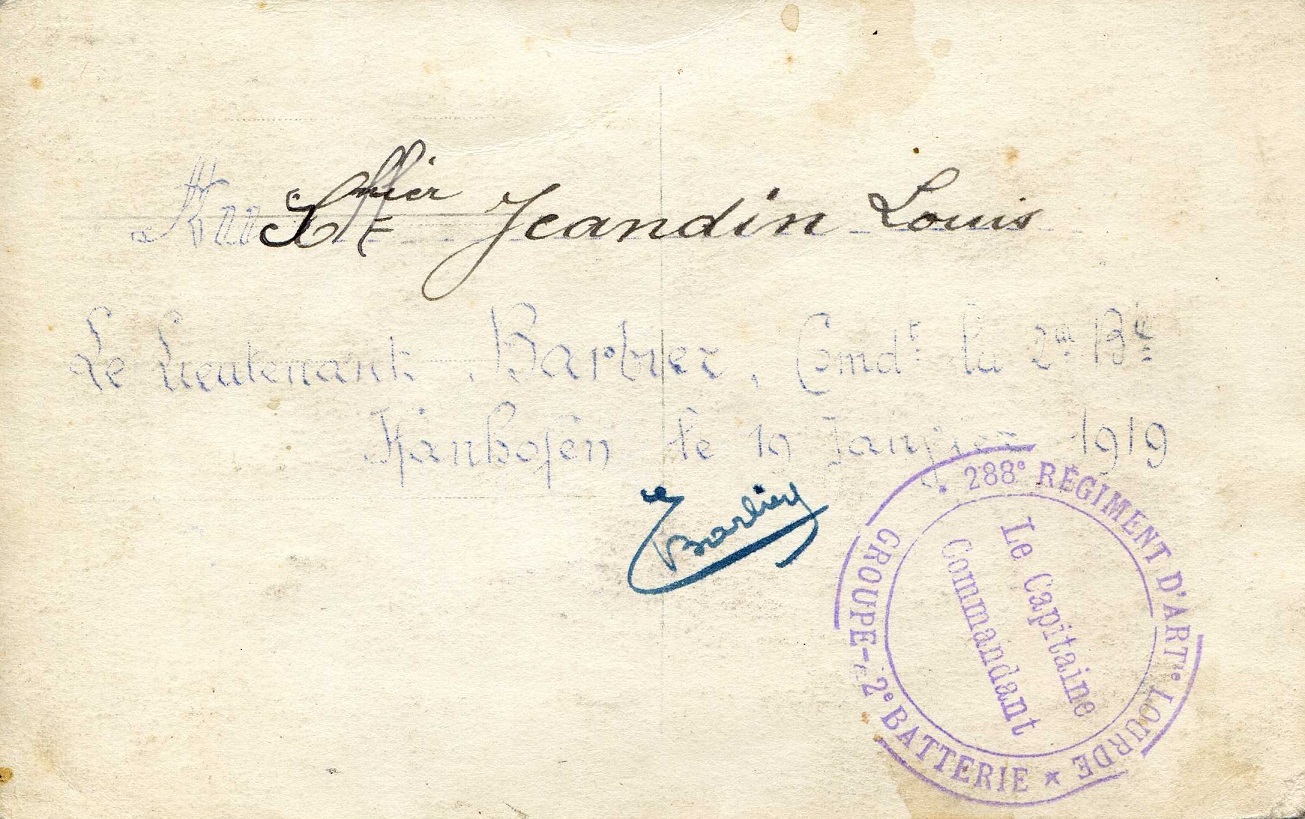 Au S/Offier Jeandin Louis
Le Lieutenant Barbier, Comdt la 2me Bie
le 19 Janvier 1919
Barbier
288e RÉGIMENT D'ARTie LOURDE
GROUPE - 2e BATTERIE
Le Capitaine
Commandant